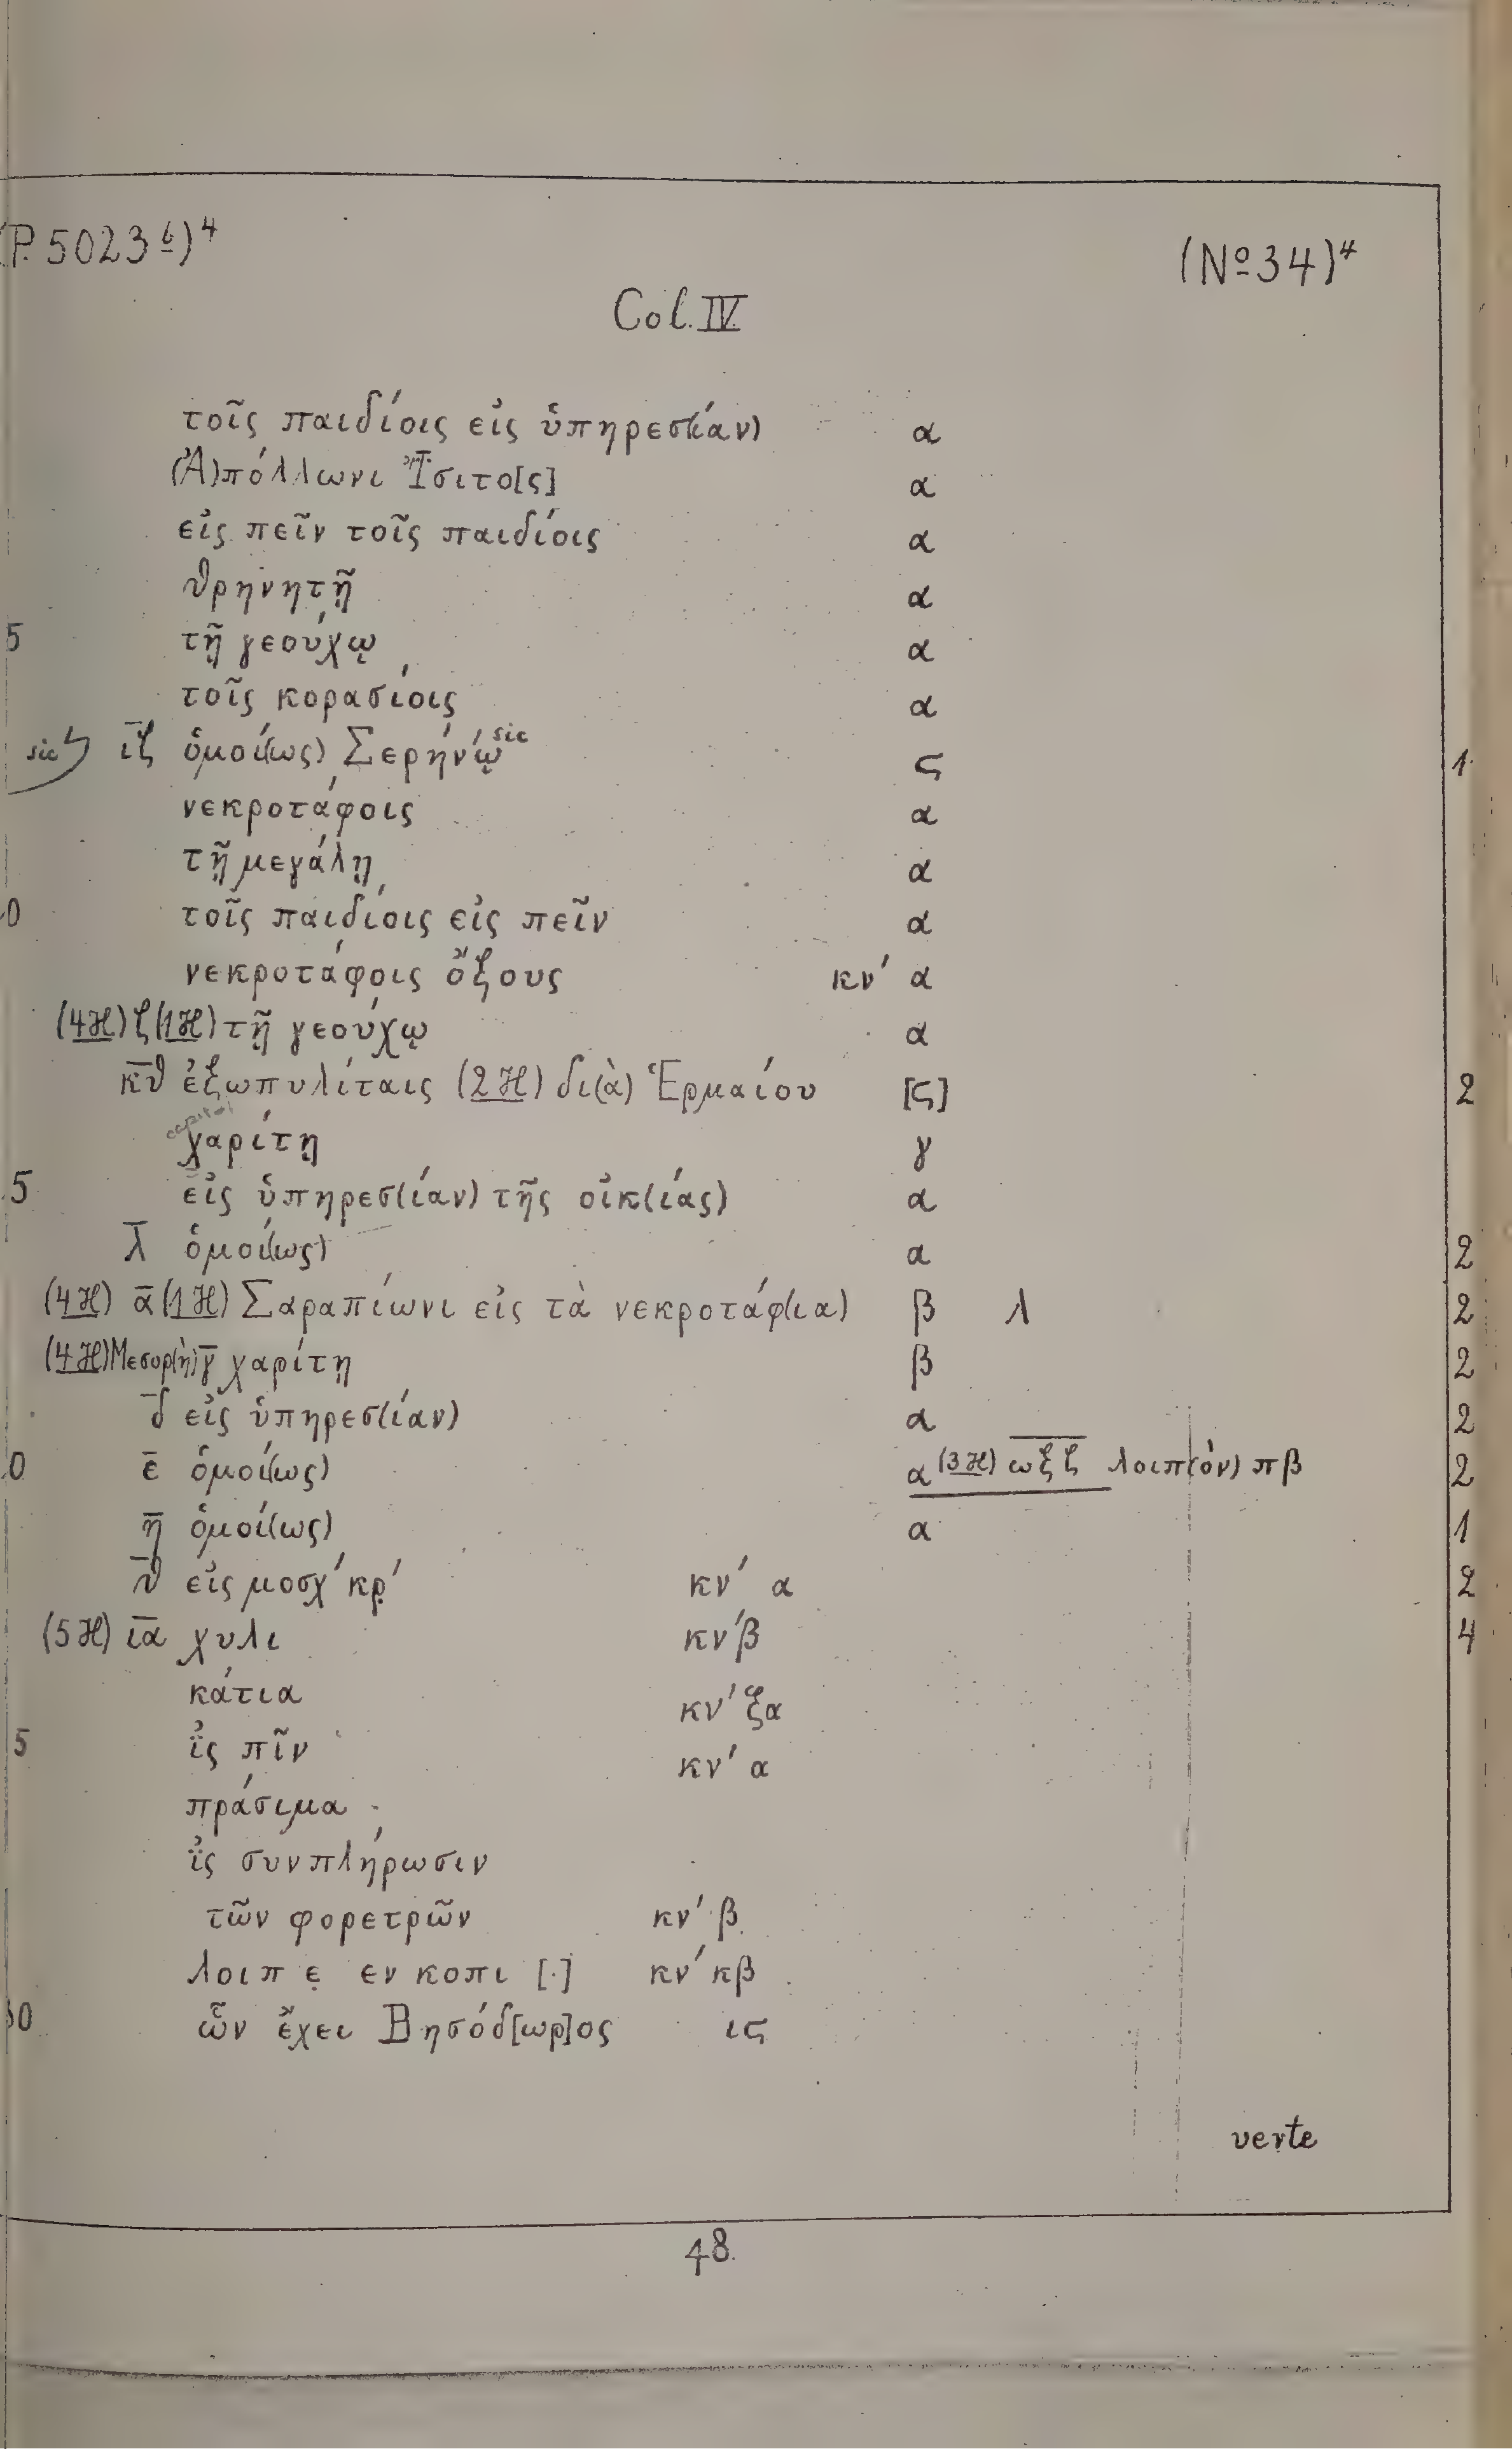 (P. 5023 b)⁴ (Nº 34)⁴
Col. IV.
τοῖς παιδίοις εἰς ὑπηρεσ(ίαν) α
(Ἀ)πόλλωνι Ἴσιτο[ς] α
εἰς πεῖν τοῖς παιδίοις α
θρηνητῇ α
5 τῇ γεούχῳ α
τοῖς κορασίοις α
sic ιζ̅ ὁμοί(ως) Σερήνῴ sic ϛ 1
νεκροτάφοις α
τῇ μεγάλῃ α
0 τοῖς παιδίοις εἰς πεῖν α
νεκροτάφοις ὄξους κν′ α
(4H) ζ (1H) τῇ γεούχῳ α
κ̅θ̅ ἐξωπυλίταις (2H) δι(ὰ) Ἑρμαίου [ϛ] 2
χαρίτῃ γ
5 εἰς ὑπηρεσ(ίαν) τῆς οἰκ(ίας) α
λ̅ ὁμοί(ως) α 2
(4H) α̅ (1H) Σαραπίωνι εἰς τὰ νεκροτάφ(ια) β λ 2
(4H) Μεσορ(ὴ) γ̅ χαρίτῃ β 2
δ̅ εἰς ὑπηρεσ(ίαν) α 2
0 ε̅ ὁμοί(ως) α (3H) ω̅ξ̅ζ̅ λοιπ(όν) πβ 2
η̅ ὁμοί(ως) α 1
θ̅ εἰς μοσχ′ κρ̣′ κν′ α 2
(5H) ι̅α̅ χυλι κν′ β 4
κάτια κν′ ξα
5 ἰ̈ς πῖν κν′ α
πράσιμα
ἰ̈ς συνπλήρωσιν
τῶν φορετρῶν κν′ β
λοιπ ε̣ εν κοπι [·] κν′ κβ
30 ὧν ἔχει Βησόδ[ωρ]ος ιϛ
verte
48.